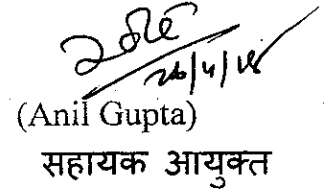 26/4/18
(Anil Gupta)
सहायक आयुक्त